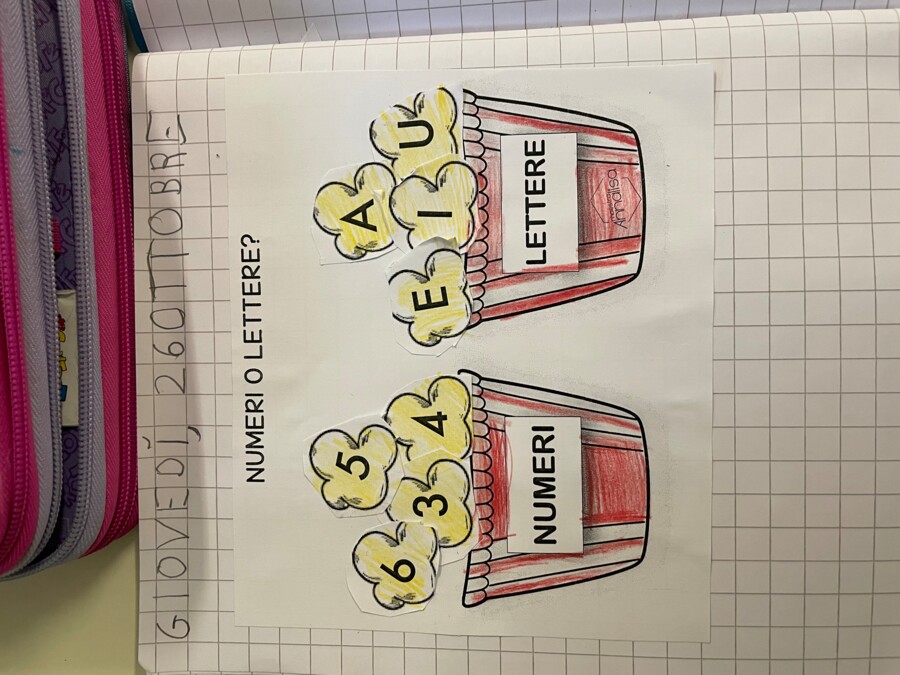 GIOVEDÌ, 26 OTTOBRE
NUMERI O LETTERE?
5
4
6
3
NUMERI
A
U
I
E
LETTERE
Annalisa